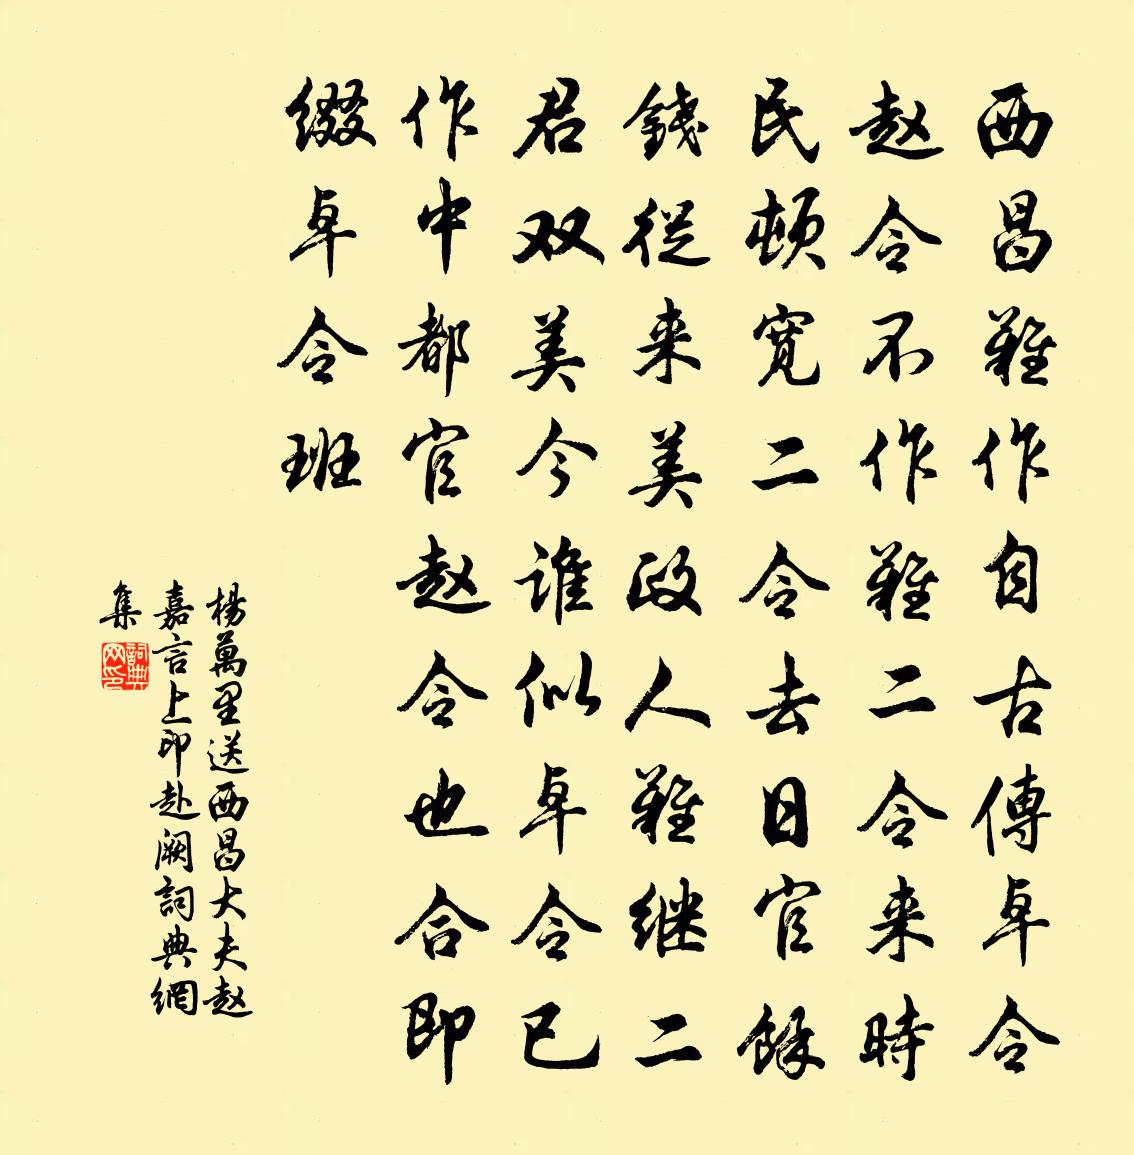 西昌難作自古傳卓令
赵令不作難二令来時
民頓寛二令去日官餘
錢從来美政人難継二
君双美今誰似卓令已
作中都官赵令也合即
缀卓令班
楊萬里送西昌大夫赵
嘉言上印赴阙詞典網
集
詞典网印